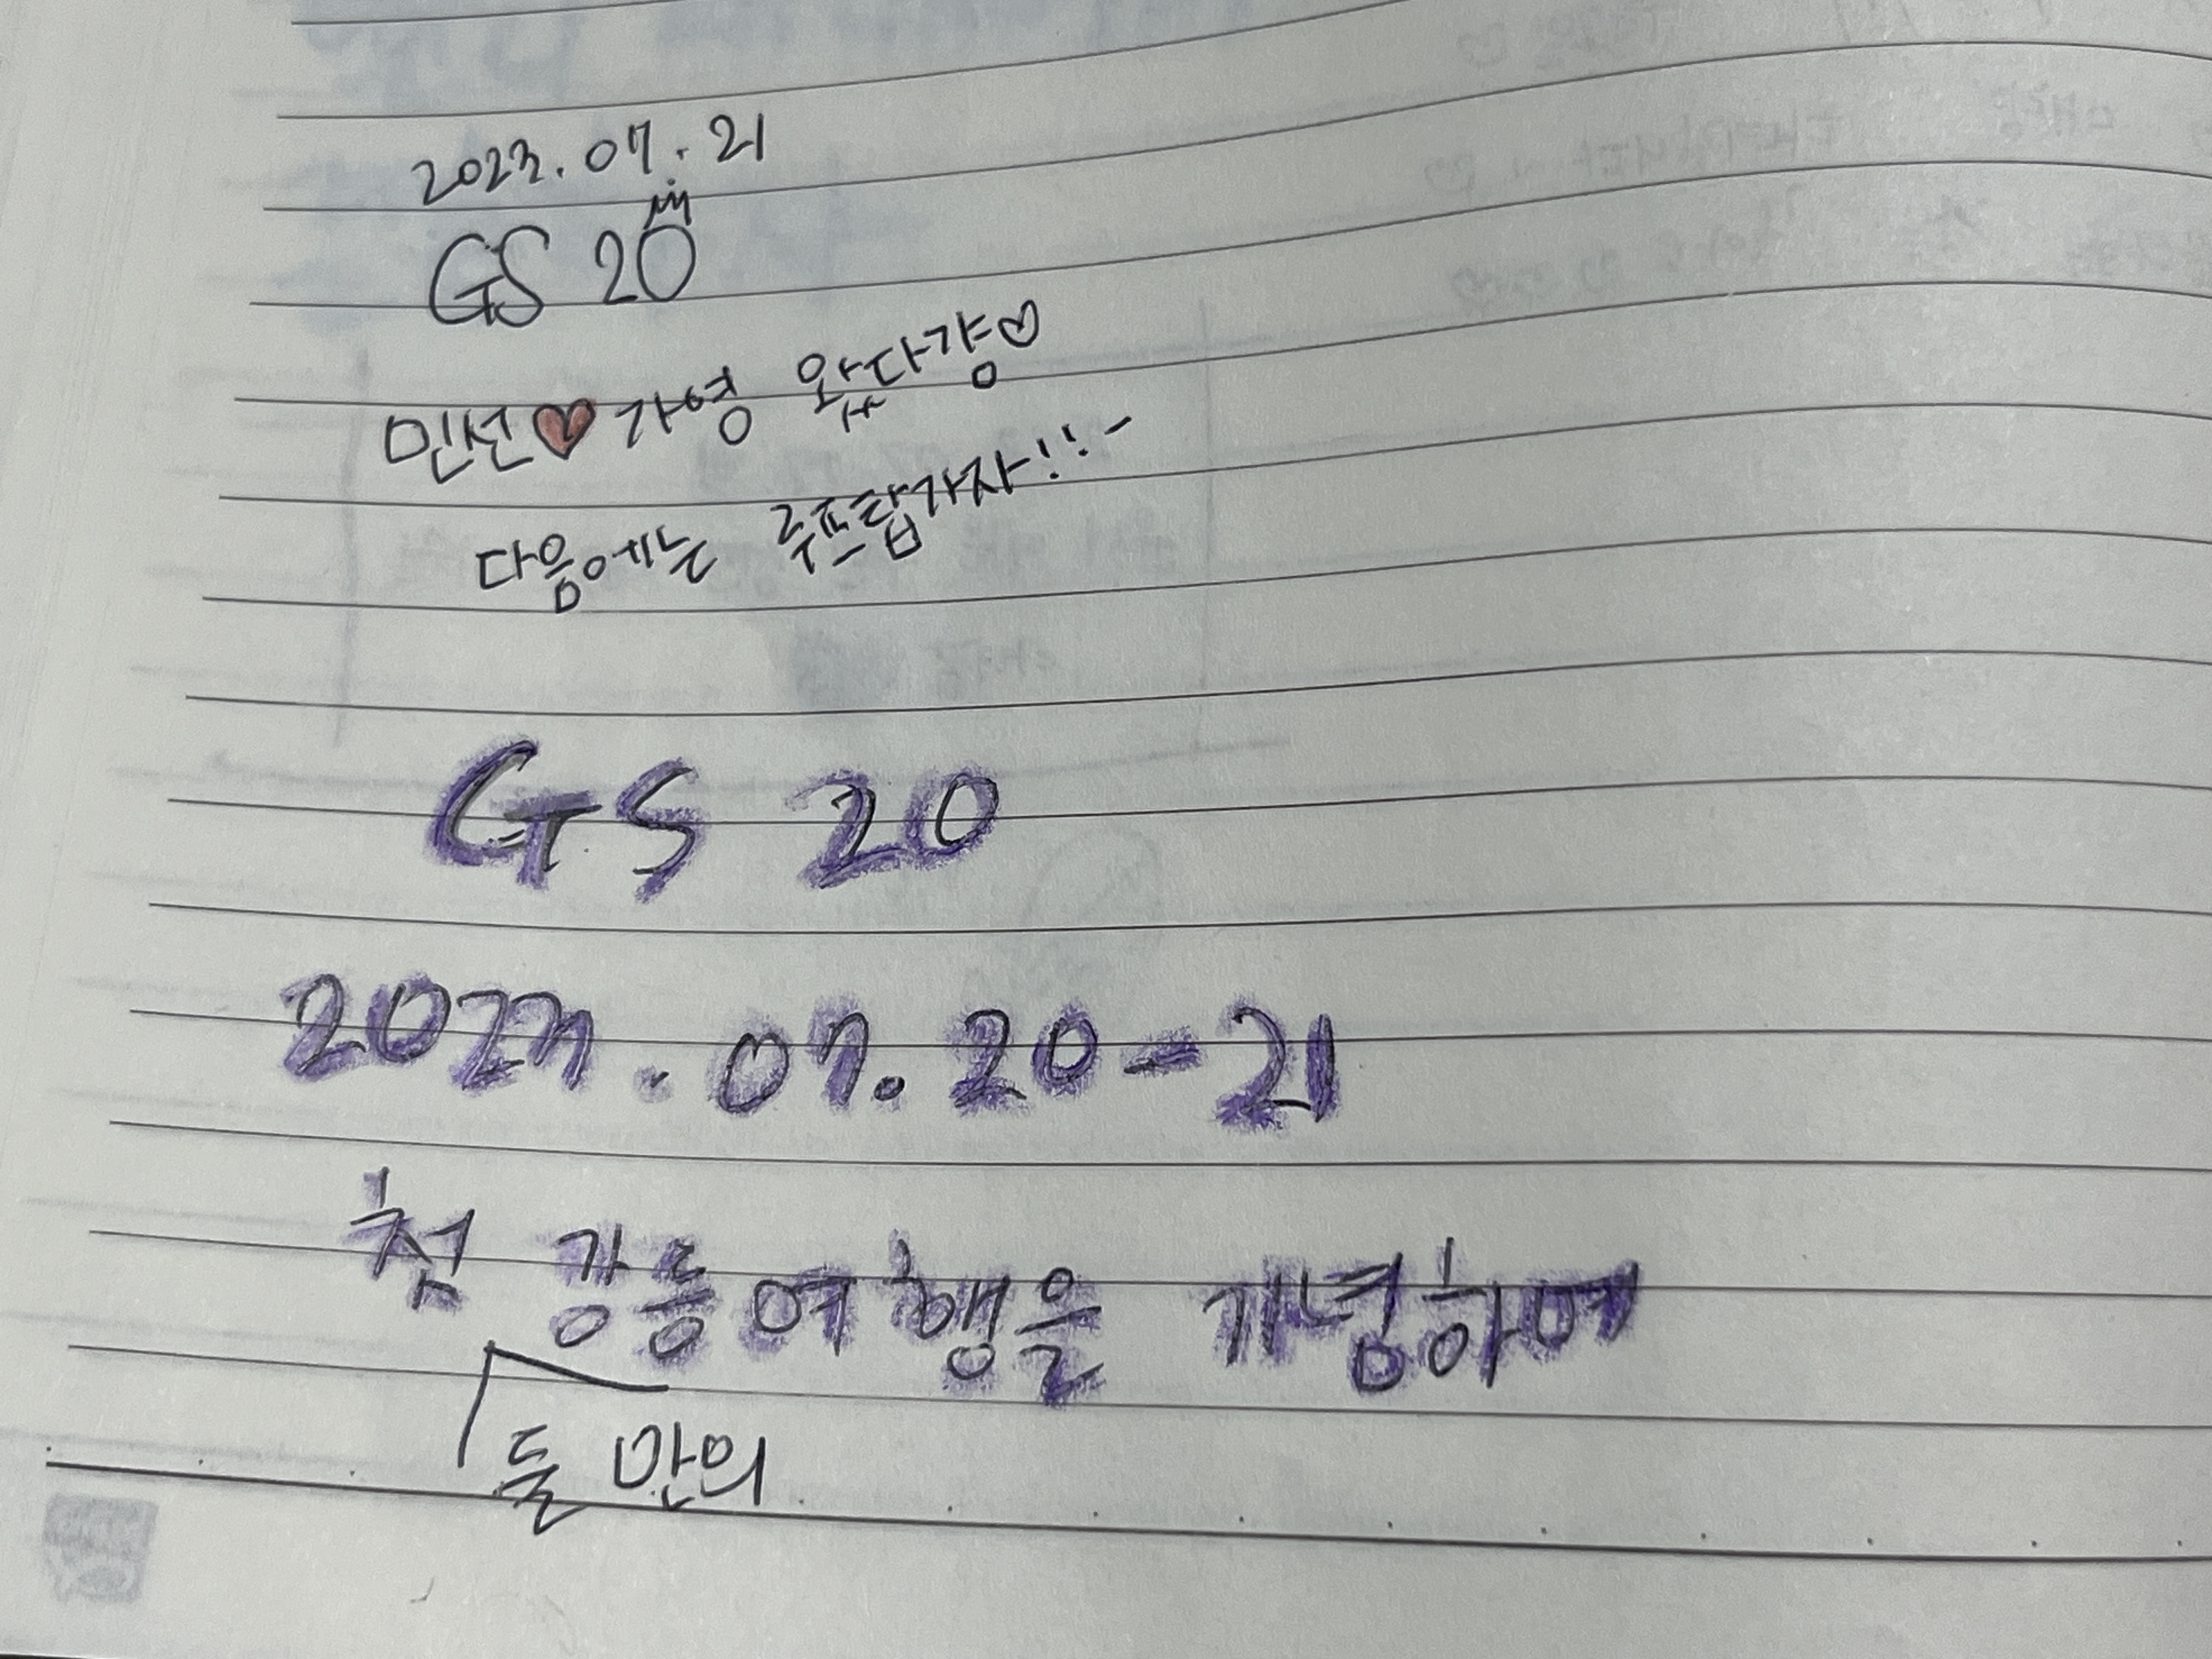 2023.07.21
GS 20
민선♥가영 왔다걍♡
다음에는 루프탑가자!!-
GS 20
2023.07.20-21
첫 강릉여행을 기녕하여
둘 만의